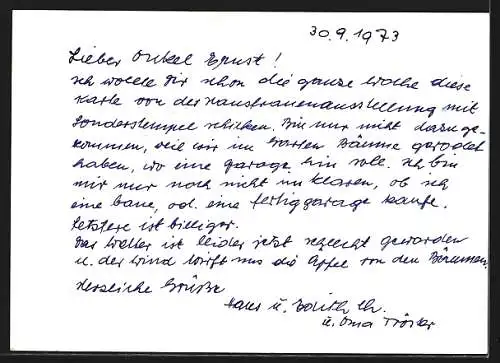 30.9.1973
Lieber Onkel Ernst!
Ich wollte Dir schon die ganze Woche diese
Karte von der Hausfrauenausstellung mit
Sonderstempel schicken. Bin nur nicht dazu ge-
kommen, weil wir im Garten Bäume gerodet
haben, wo eine Garage hin soll. Ich bin
mir nur noch nicht im Klaren, ob ich
eine baue, od. eine Fertiggarage kaufe.
Letztere ist billiger.
Das Wetter ist leider jetzt schlecht geworden
u. der Wind wirft uns die Äpfel von den Bäumen.
Herzliche Grüße
Hans u. Edith Ch.
u. Oma